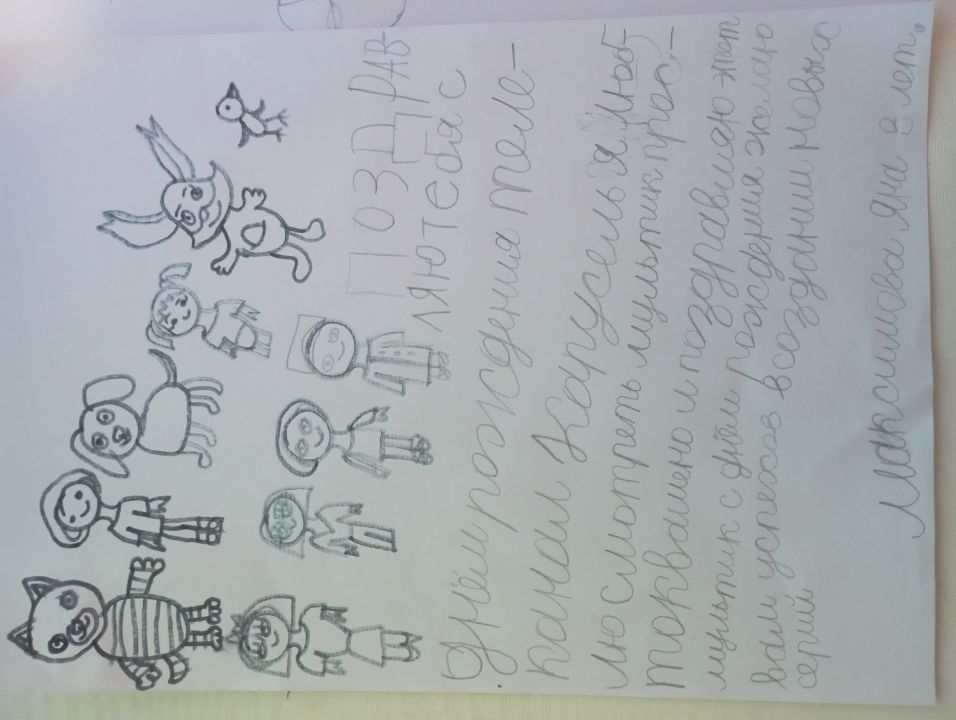 ПОЗДРАВ-
ЛЯЮ тебя с
днём рождения теле-
канал Карусель я люб-
лю смотреть мультик прос-
токвашено и поздравляю этот
мультик с днём рождения желаю
вам успехов в создании новых
серий
Максимова Яна 8 лет.